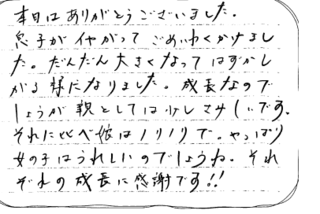 本日はありがとうございました。
息子がイヤがってごめいわくかけまし
た。だんだん大きくなってはずかし
がる様になりました。成長なので
しょうが親としては少しさみしいです。
それに比べ娘はノリノリで。やっぱり
女の子はうれしいのでしょうね。それ
ぞれの成長に感謝です!!